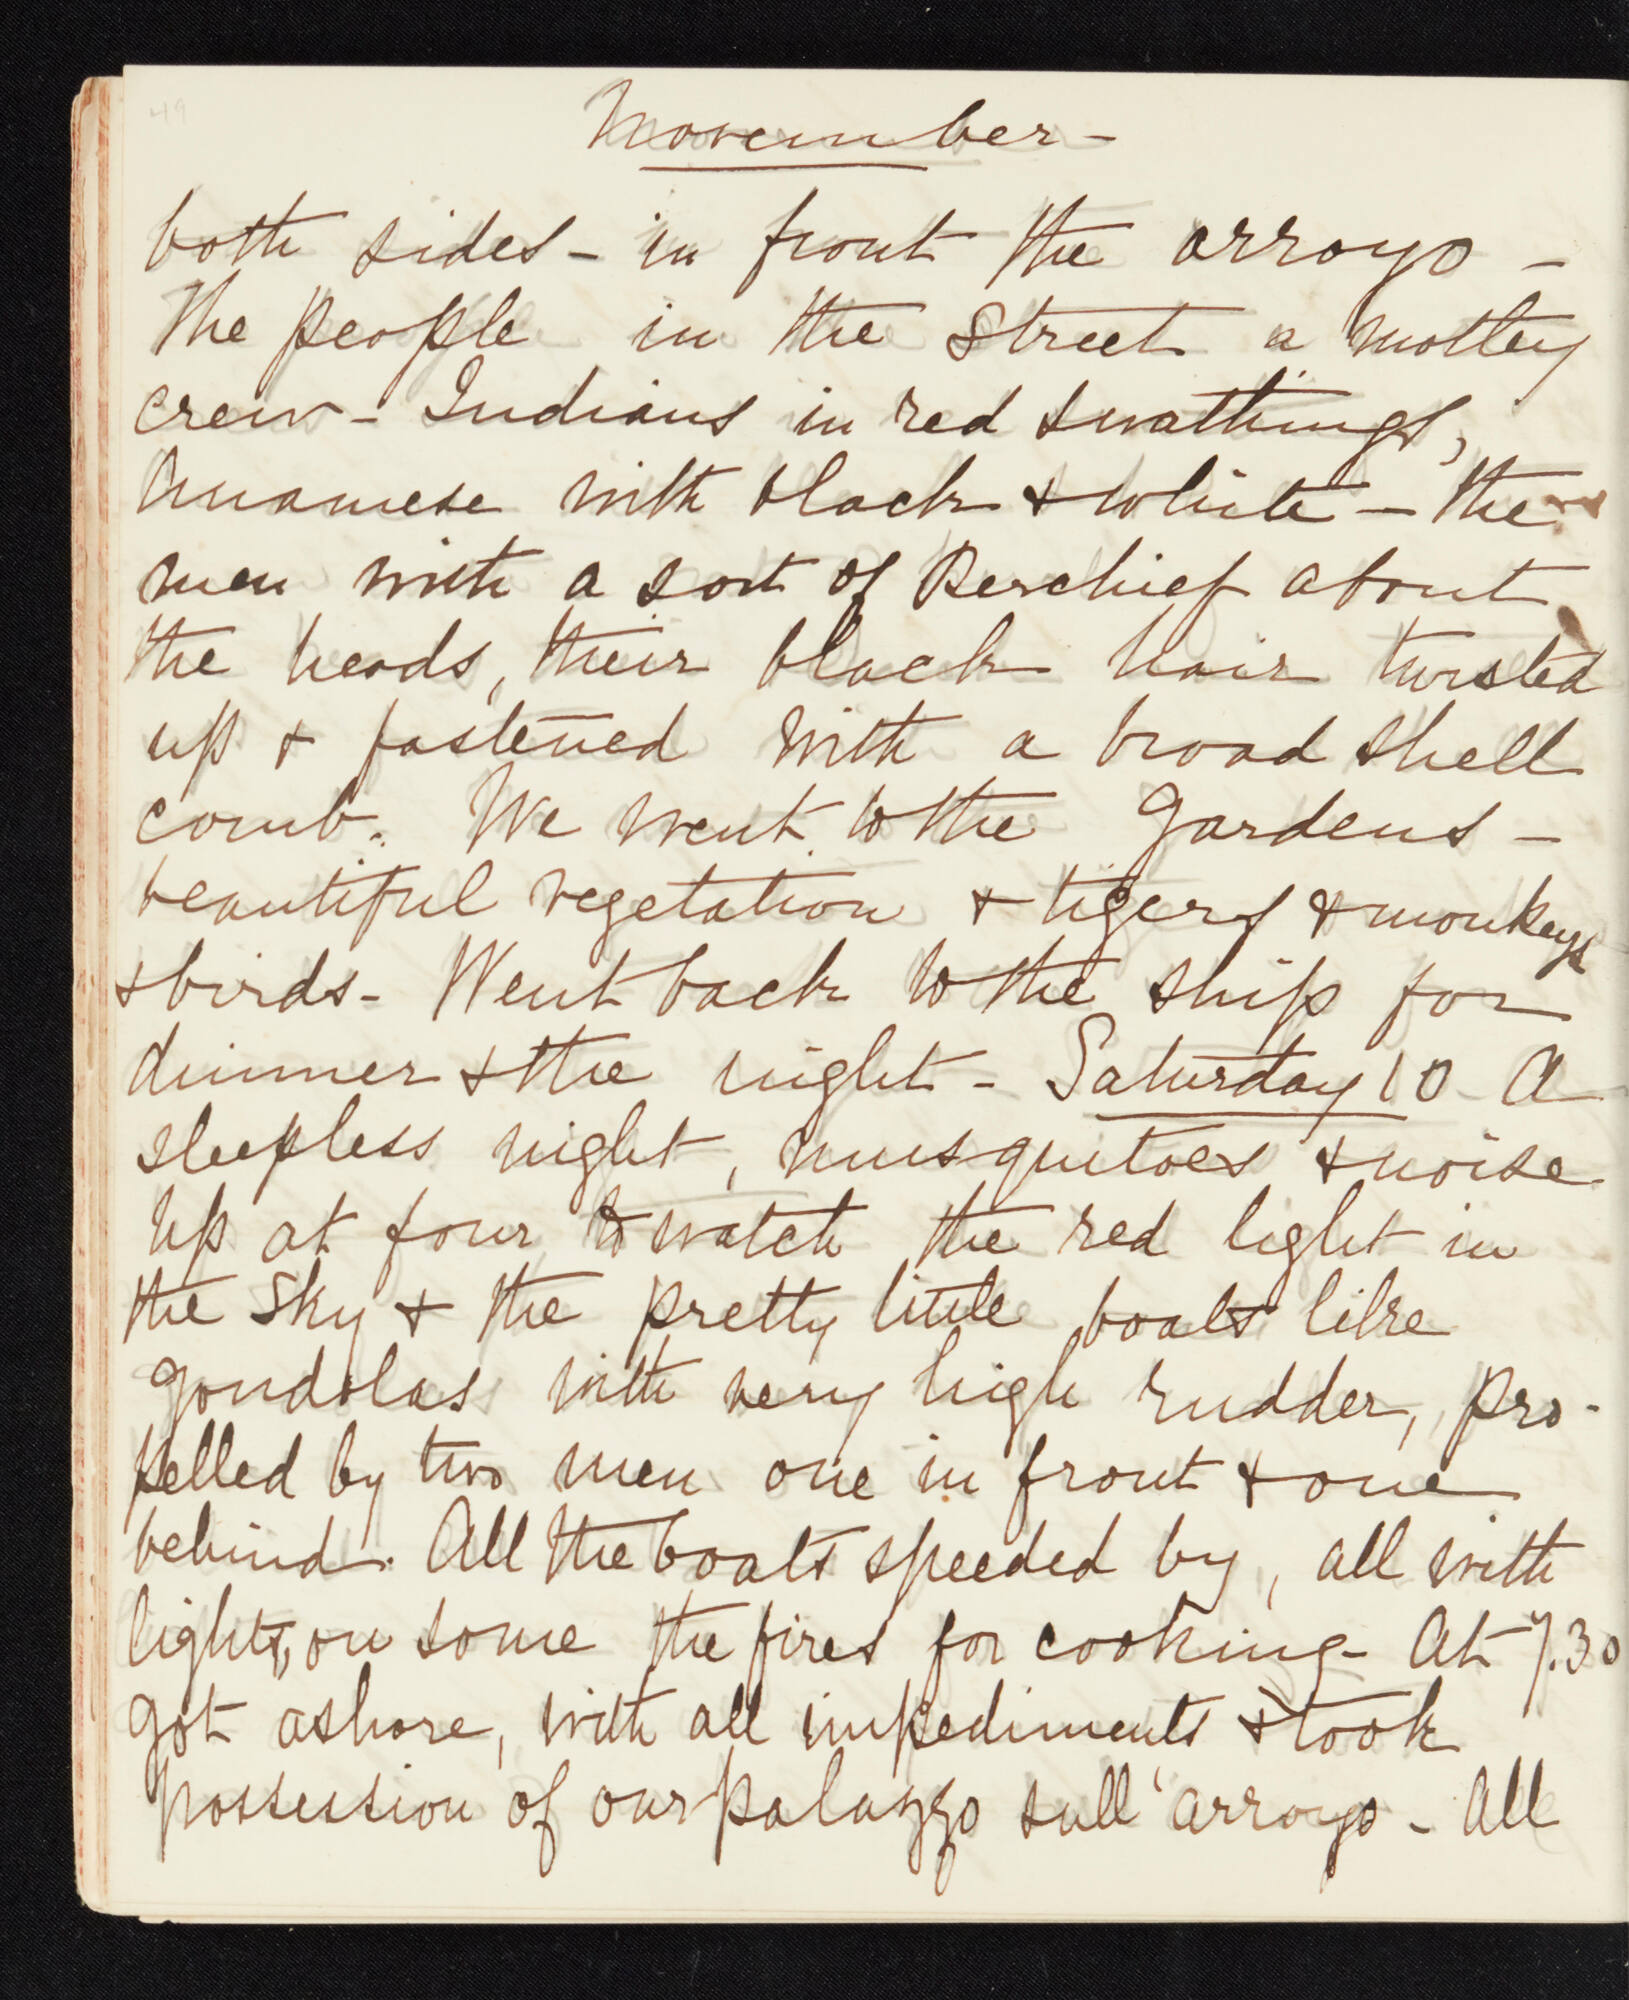 49
November -
both sides - in front the arroyo -
The people in the street a motley
crew - Indians in red swathings,
Anamese with black & white - the
men with a sort of kerchief about
the heads, their black hair twisted
up & fastened with a broad shell
comb. We went to the Gardens -
beautiful vegetation & tigers & monkeys
& birds - Went back to the ship for
dinner & the night - Saturday 10 A
sleepless night, musquitoes & noise.
Up at four to watch the red light in
the sky & the pretty little boats like
gondolas with very high rudder, pro-
pelled by two men one in front & one
behind. All the boats speeded by, all with
lights, on some the fires for cooking - At 7.30
got ashore, with all impediments & took
possession of our palazzo sull' arroyo - All